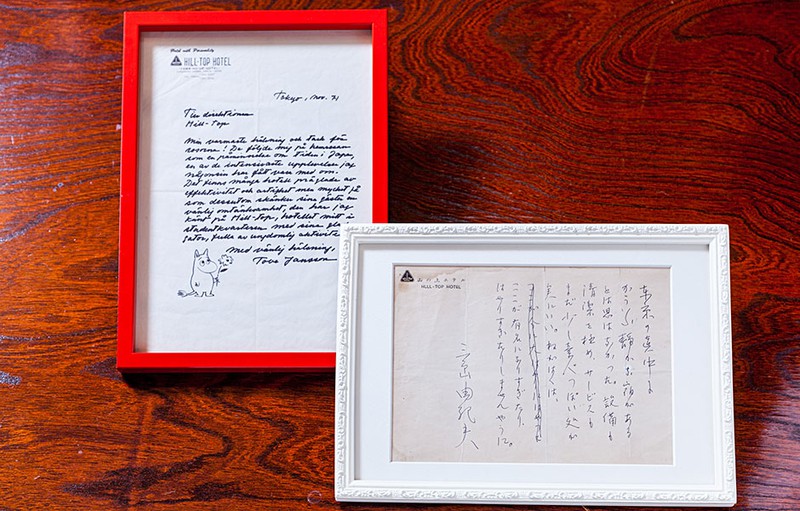 HILL-TOP HOTEL
Tokyo, Nov. 71
Till direktionen
Hill-Top
Min varmaste hälsning och tack för
rosorna! De följde mig på hemresan
som en påminnelse om tiden i Japan,
en av de intensivaste upplevelser jag
någonsin har fått vara med om.
Det finns många hotell präglade av
effektivitet och artighet men mycket få
som dessutom skänker sina gäster en
vänlig omtänksamhet, den har jag
känt på Hill-Top, hotellet mitt i
studentkvarteren med sina
gator, fulla av ungdomlig aktivitet
Med vänlig hälsning,
Tove Jansson
山の上ホテル
HILL-TOP HOTEL
東京の真中に
かういふ静かな宿がある
とは思はなかつた。設備も
清潔を極め、サービスも
まだ少し素人つぽい処が
実にいい。ねがはくは、
ここが有名になりすぎたり、
はやりすぎたりしませんやうに。
三島由紀夫